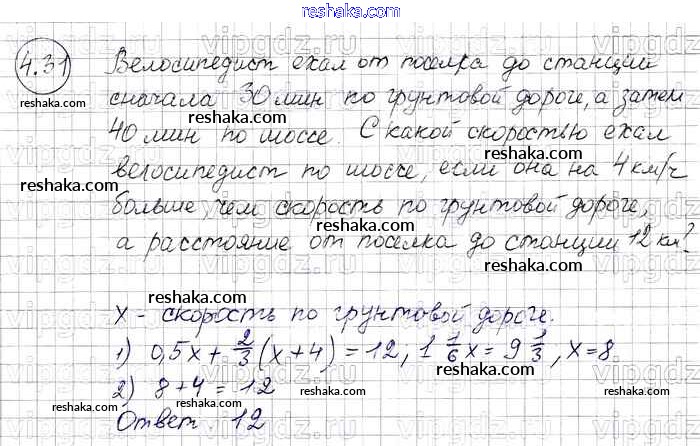 reshaka.com
4.31 Велосипедист ехал от поселка до станции
reshaka.com
сначала 30 мин по грунтовой дороге, а затем
reshaka.com
40 мин по шоссе. С какой скоростью ехал
reshaka.com
велосипедист по шоссе, если она на 4 км/ч
reshaka.com
больше, чем скорость по грунтовой дороге,
reshaka.com
а расстояние от поселка до станции 12 км?
reshaka.com
reshaka.com
x - скорость по грунтовой дороге.
reshaka.com
1) 0,5x + 2/3 (x + 4) = 12; 1 1/6 x = 9 1/3, x = 8
reshaka.com
2) 8 + 4 = 12
reshaka.com
Ответ: 12
reshaka.com
vipgdz